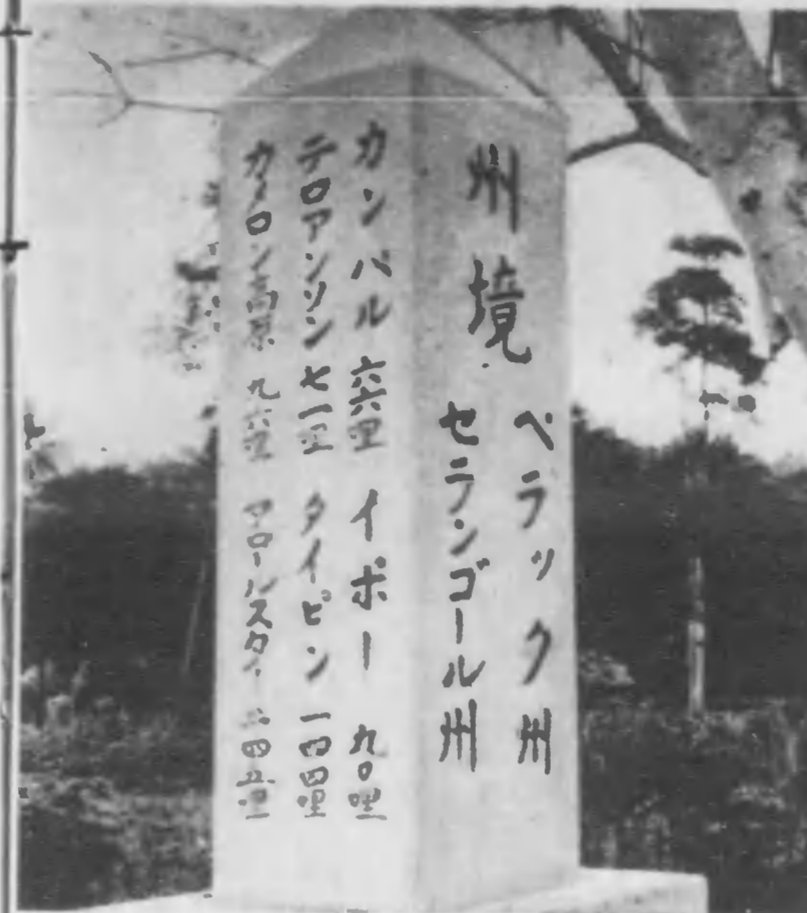 州境
ペラック州
セランゴール州
カンパル 六六哩 イポー 九〇哩
テロアンソン 七一哩 タイピン 一四四哩
カメロン高原 九六哩 アロールスター 二四五哩